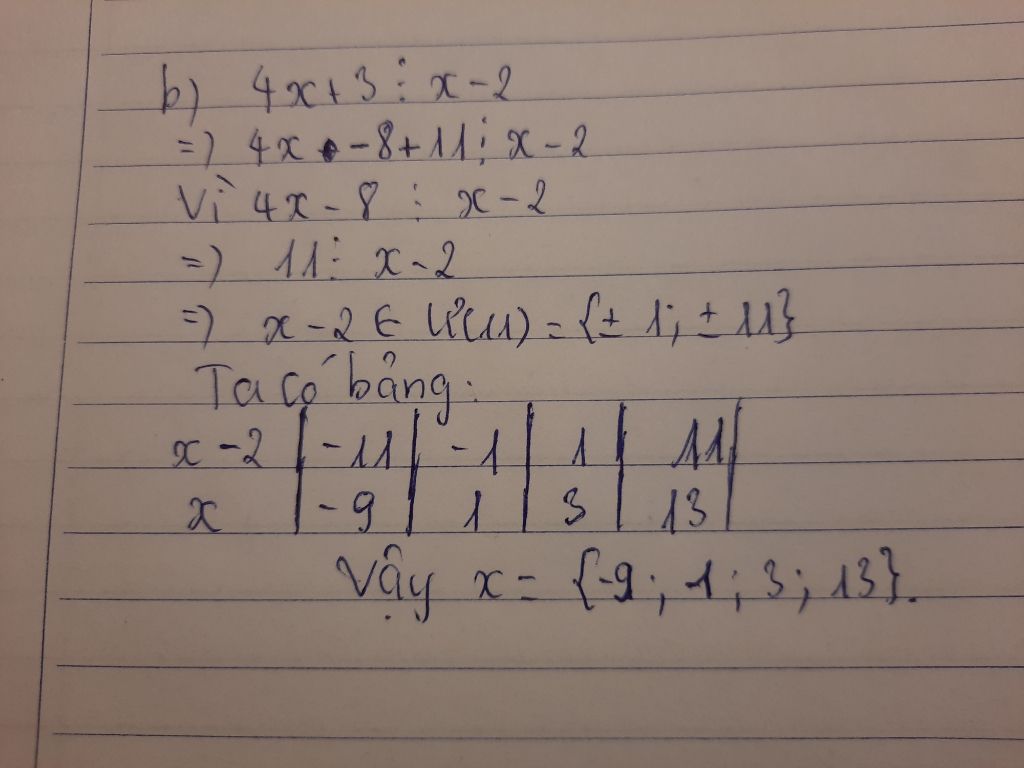 b) 4x+3 ⋮ x-2
=) 4x -8+11 ⋮ x-2
Vì 4x-8 ⋮ x-2
=) 11 ⋮ x-2
=) x-2 ∈ Ư(11) = {± 1; ± 11}
Ta có bảng:
x-2 | -11 | -1 | 1 | 11 |
x | -9 | 1 | 3 | 13 |
Vậy x = {-9; 1; 3; 13}.